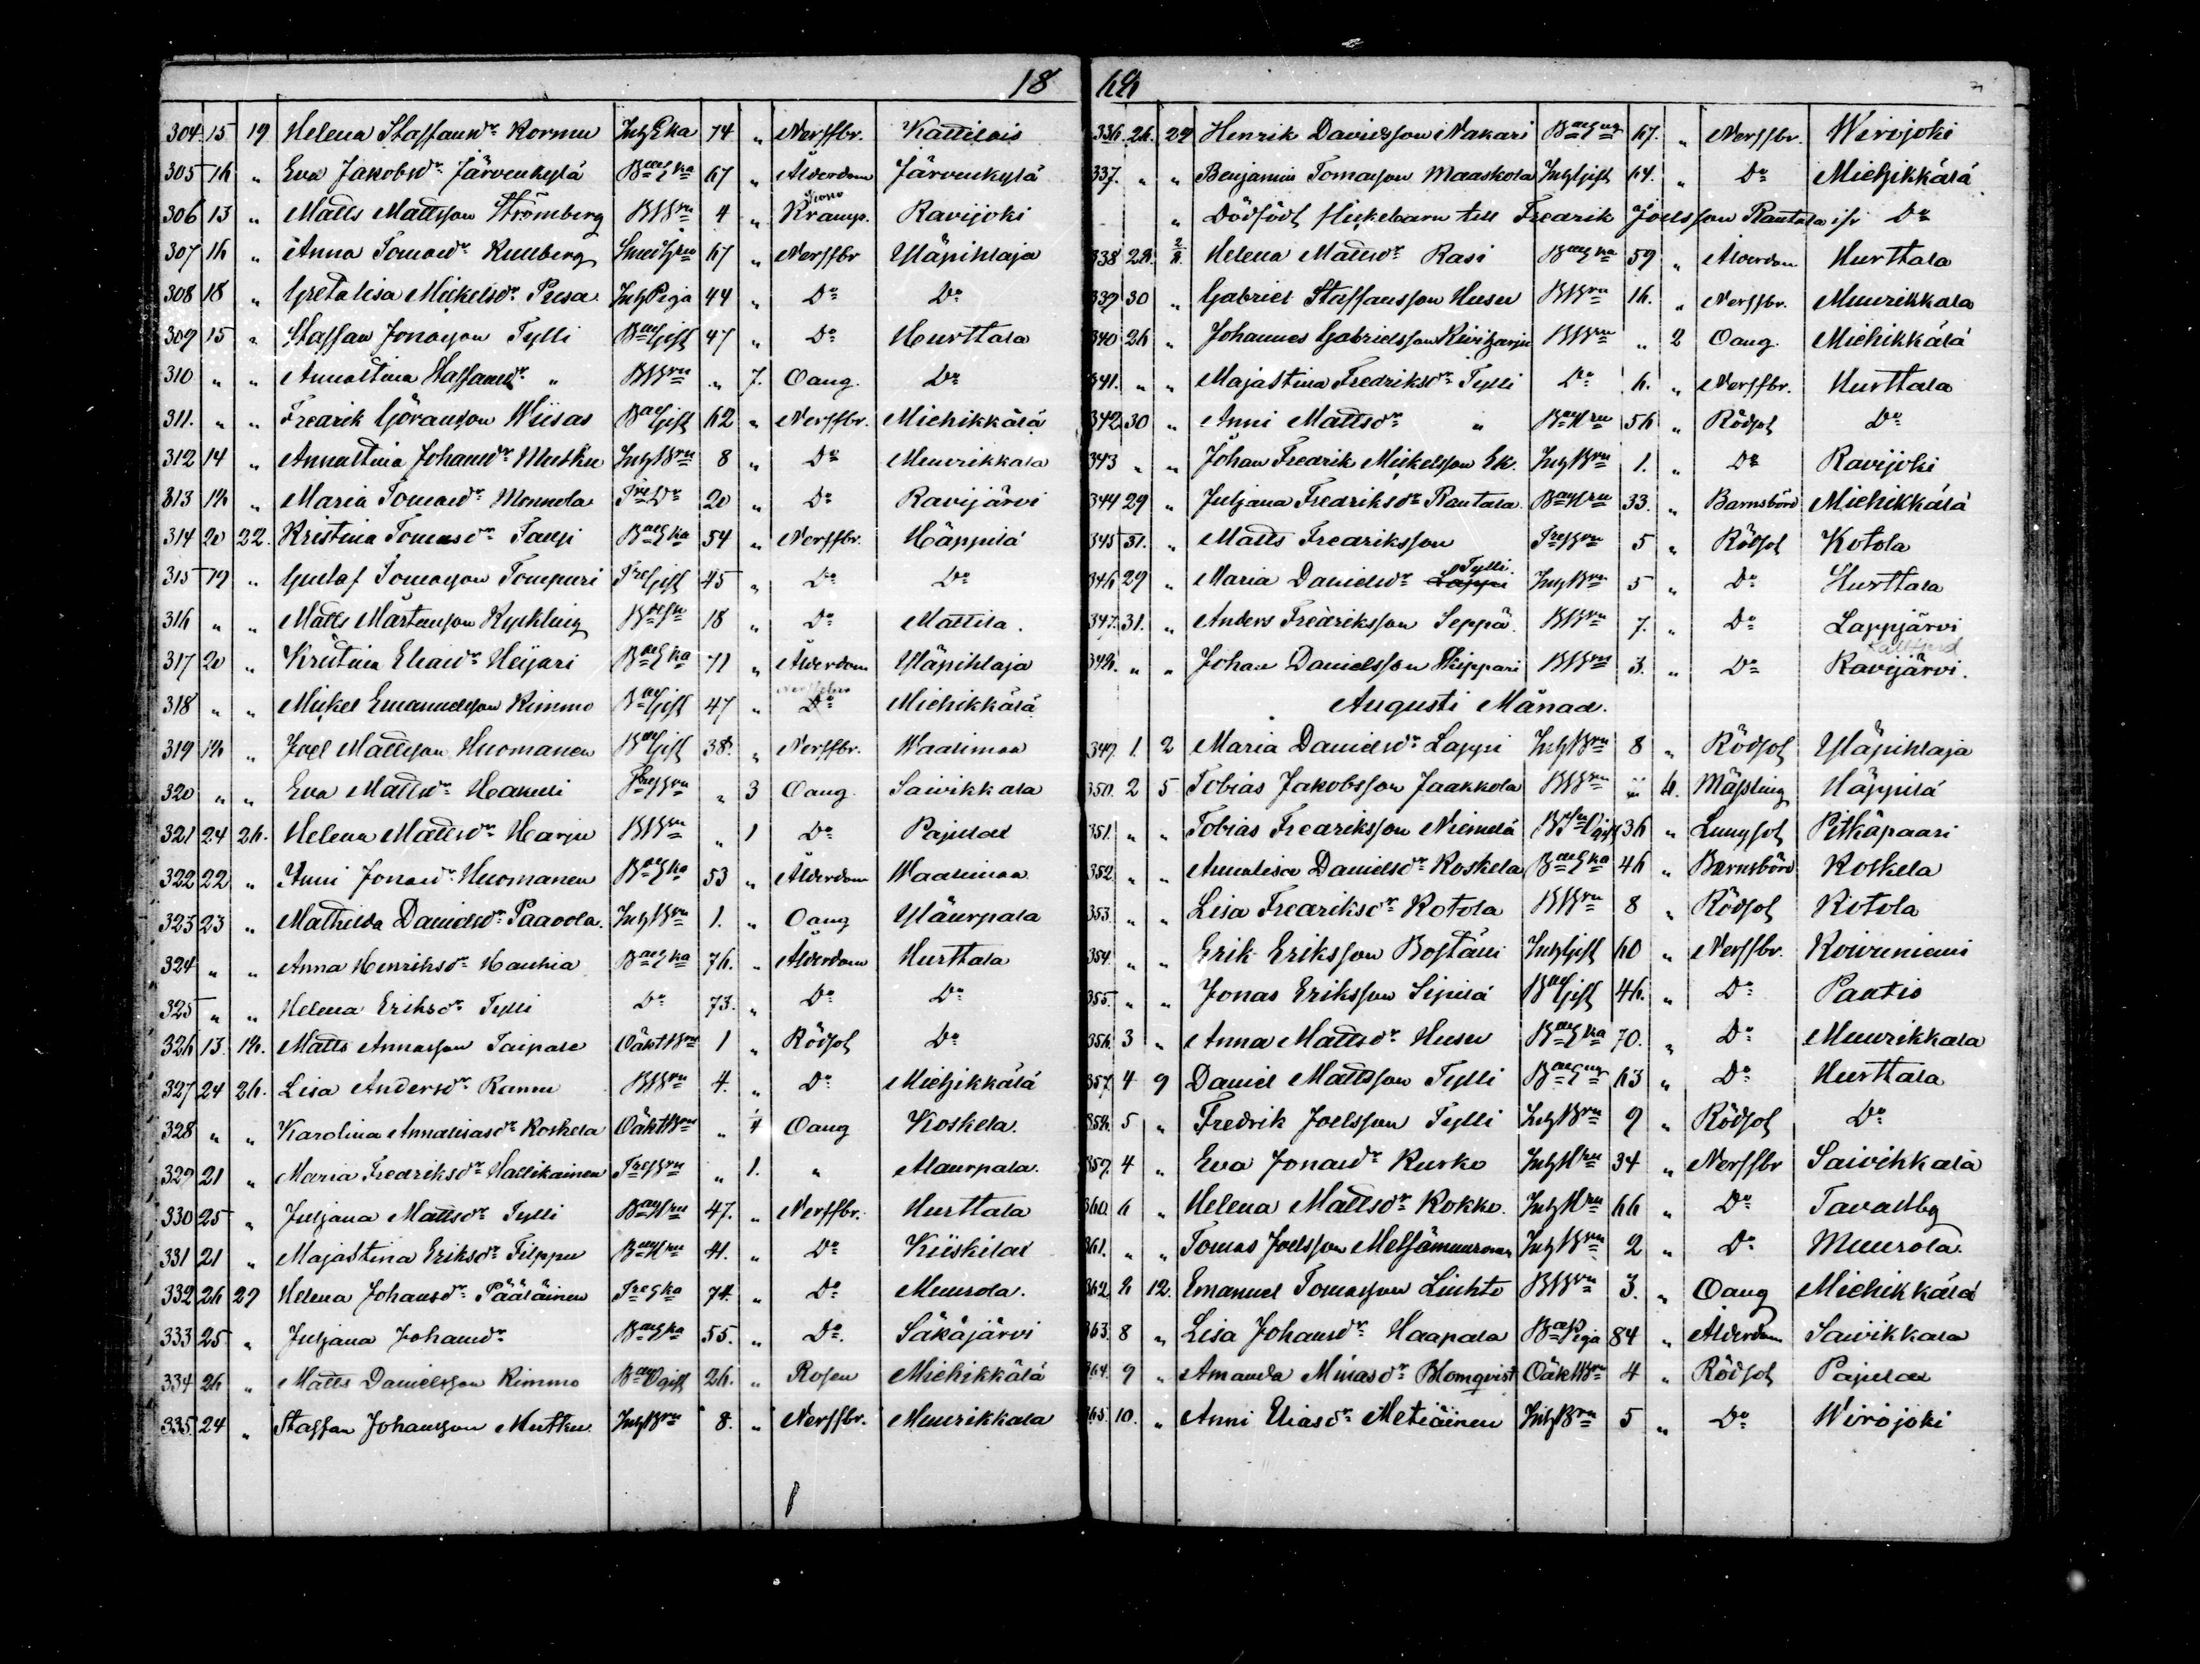 18
68
304. 15 19 Helena Staffansdr. Kormu Inh Eka 74 " Nerffbr. Kattilais
305 16 " Eva Jakobsdr. Järvenkylä Bae Eka 67 " Ålderdom Järvenkylä
306 13 " Matts Mattsson Strömberg BBrn 4 " Kramp. Ravijoki
307 16 " Anna Tomasdr. Kullberg 67 " Nerffbr Yläpihlaja
308 18 " Gretalisa Mickelsdr. Pusa Inh Piga 44 " Do Do
309 15 " Staffan Jonasson Tylli Bae Gift 47 " Do Hurttala
310 " " Annastina Staffansdr. " BBrn " 7. Oang. Do
311. " " Fredrik Göransson Wiisas Bae Gift 62 " Nerffbr. Miehikkälä
312 14 " Annastina Johansdr. Mutku Inh Brn 8 " Do Muurikkala
313 16 " Maria Tomasdr. Monnola Tre Dr 20 " Do Ravijärvi
314 20 22. Kristina Tomasdr. Tanfi Bae Eka 54 " Nerffbr. Häppilä
315 19 " Gustaf Tomasson Tompuri Tre Gift 45 " Do Do
316 " " Matts Mårtensson Kyckling 18 " Do Mattila.
317 20 " Kristina Eliasdr. Heijari Bae Eka 71 " Ålderdom Yläpihlaja
318 " " Mickel Emanuelsson Kimmo Bae Gift 47 " Do Miehikkälä
319 16 " Joel Mattsson Huomanen Bae Gift 38. " Nerffbr. Waalimaa
320 " " Eva Mattsdr. Heakuli Tre Brn " 3 Oang. Saivikkala
321 24 26. Helena Mattsdr. Harju BBrn " 1 Do Pajulai
322 22 " Anni Jonasdr. Huomanen Bae Eka 53 " Ålderdom Waalimaa
323 23 " Mathilda Danielsdr. Paavola. Inh Brn 1. " Oang Yläurpala
324 " " Anna Henriksdr. Hauhia Bae Eka 76. " Ålderdom Hurttala
325 " " Helena Eriksdr. Tylli Do 73. " Do Do
326 13. 16. Matts Annasson Taipale Oäkt Brn 1 " Rödsot Do
327 24 26. Lisa Andersdr. Ramu BBrn 4. " Do Miehikkälä
328 " " Karolina Annalisasdr. Koskela Oäkt Brn " 1/4 Oang Koskela.
329 21 " Maria Fredriksdr. Hallikainen Tre Brn " 1. " Alaurpala.
330 25 " Juljana Mattsdr. Tylli Bae Hru 47. " Nerffbr. Hurttala
331 21 " Majastina Eriksdr. Filppu Bae Hru 41. " Do Kiiskilai
332 26 29 Helena Johansdr. Pääläinen Tre Eka 74. " Do Muurola.
333 25 " Juljana Johansdr. Bae Eka 55. " Do. Säkäjärvi
334 26 " Matts Danielsson Kimmo 26. " Rosen Miehikkälä
335 24 " Staffan Johansson Mutku Inh Brn 8. " Nerffbr. Muurikkala
336 26. 29 Henrik Davidsson Nakari 67. " Nerffbr. Wirojoki
337. " " Benjamin Tomasson Maaskola Inh Gift 64. " Do Miehikkälä
" Dödfödt flickebarn till Fredrik Joelsson Rantala ifr Do
338 28. 2/8. Helena Mattsdr. Rasi Bae Eka 59 " Ålderdom Hurttala
339 30 " Gabriel Staffansson Husu BBrn 16. " Nerffbr. Muurikkala
340 26 " Johannes Gabrielsson Kiviharju BBrn " 2 Oang. Miehikkälä
341. " " Majastina Fredriksdr. Tylli Do 6. " Nerffbr. Hurttala
342 30 " Anni Mattsdr. " Bae Hru 56 " Rödsot Do
343 " " Johan Fredrik Mickelsson Ek. Inh Brn 1. " Do Ravijoki
344 29 " Juljana Fredriksdr. Rantala. Bae Hru 33. " Barnsbörd Miehikkälä
345 31. " Matts Fredriksson Tre Brn 5 " Rödsot Kotola
346 29 " Maria Danielsdr. Lappi Tylli. Inh Brn 5 " Do Hurttala
347. 31. " Anders Fredriksson Seppä. BBrn 7. " Do Lappjärvi
348. " " Johan Danielsson Skippari BBrn 3. " Do Ravijärvi.
Augusti Månad.
349. 1. 2 Maria Danielsdr. Lappi Inh Brn 8 " Rödsot Yläpihlaja
350. 2 5. Tobias Jakobsson Jaakkola BBrn " 6. Mäßling Häppilä
351. " " Tobias Fredriksson Niemelä 36 " Lungsot Pitkäpaari
352. " " Annalisa Danielsdr. Koskela Bae Eka 46 " Barnsbörd Koskela
353. " " Lisa Fredriksdr. Kotola BBrn 8 " Rödsot Kotola
354. " " Erik Eriksson Boståni Inh Gift 60 " Nerffbr. Koivuniemi
355. " " Jonas Eriksson Sipilä Bae Gift 46. " Do Paatio
356. 3 " Anna Mattsdr. Husu Bae Eka 70. " Do Muurikkala
357. 4 9 Daniel Mattsson Tylli 63 " Do Hurttala
358. 5 " Fredrik Joelsson Tylli Inh Brn 9 " Rödsot Do
359. 4 " Eva Jonasdr. Kurko Inh Hru 34 " Nerffbr Saivikkala
360. 6 " Helena Mattsdr. Kokko. Inh Hru 66 " Do Tavastby
361. " " Tomas Joelsson Metsämuuronen Inh Brn 2 " Do Muurola.
362. 8 12. Emanuel Tomasson Liuhto BBrn 3. " Oang Miehikkälä
363. 8 " Lisa Johansdr. Haapala Bae Piga 84 " Ålderdom Saivikkala
364. 9 " Amanda Minasdr. Blomqvist Oäkt Brn 4 " Rödsot Pajulai
365. 10. " Anni Eliasdr. Metiäinen Inh Brn 5 " Do Wirojoki